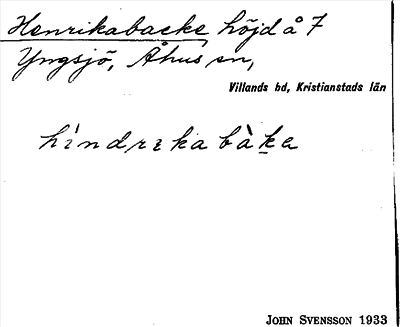 Henrikabacke, höjd å 7
Yngsjö, Åhus sn,
Villands hd, Kristianstads län
hìndrika bàka
JOHN SVENSSON 1933